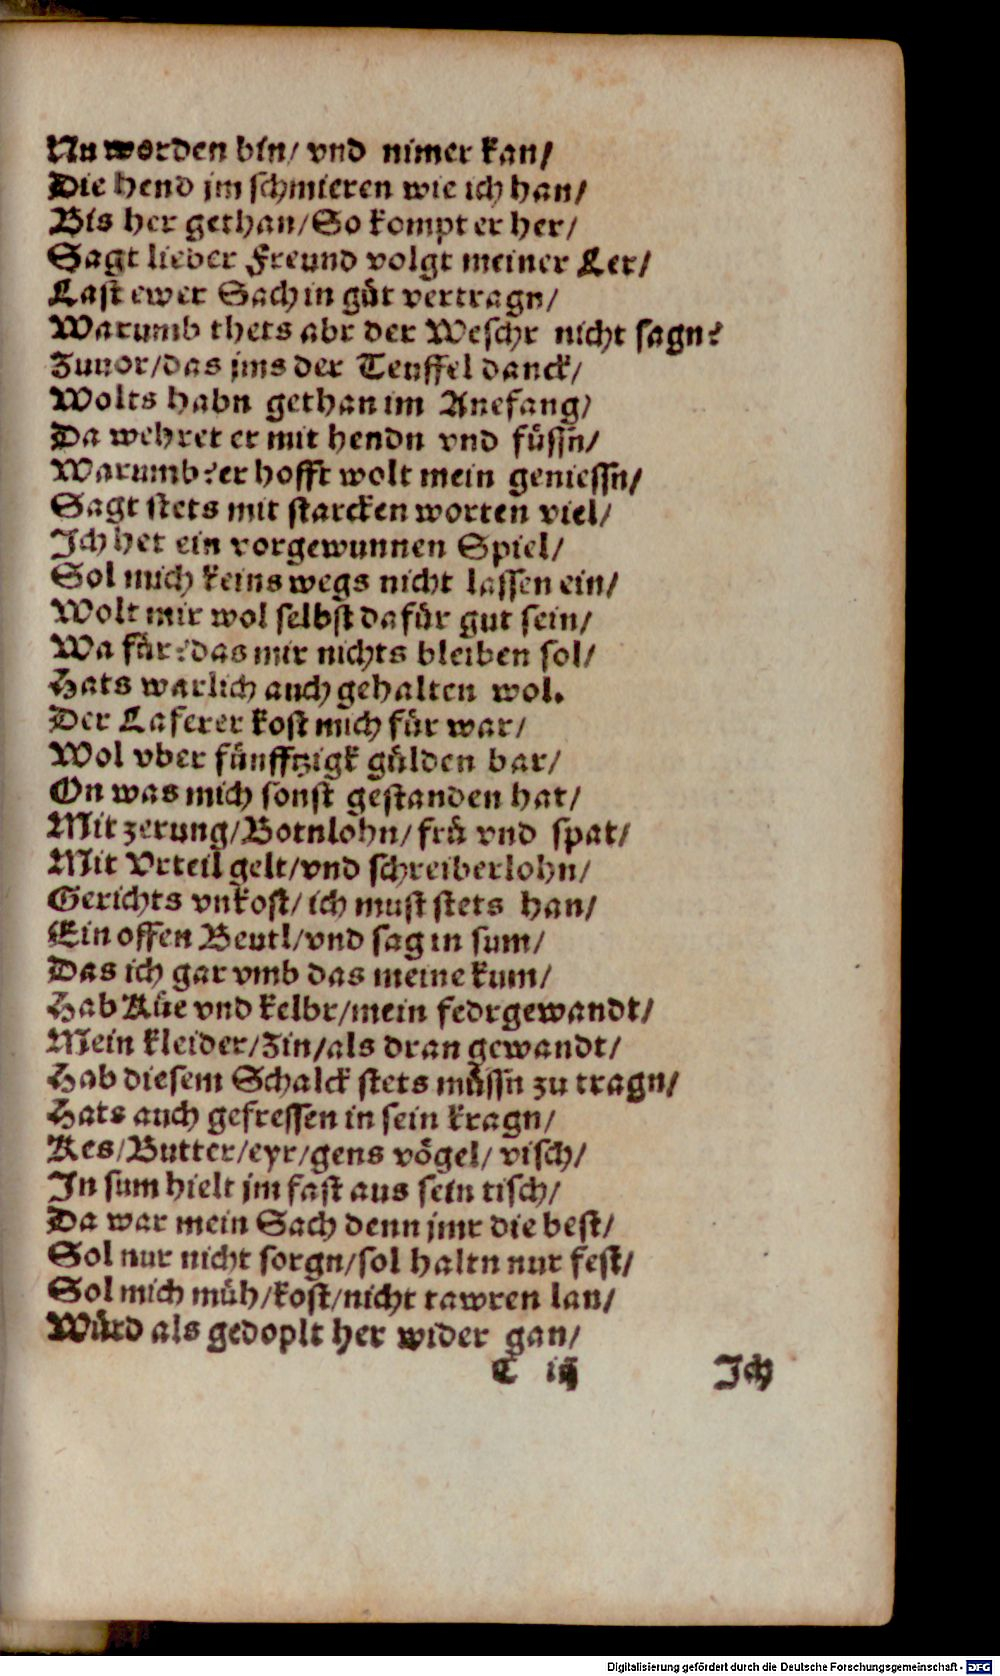 Nu worden bin/ vnd nimer kan/
Die hend jm schmieren wie ich han/
Bis her gethan/So kompt er her/
Sagt lieber Freund volgt meiner Ler/
Last ewer Sach in güt vertragn/
Warumb thets abr der Weschr nicht sagn?
Zuuor/das jms der Teuffel danck/
Wolts habn gethan im Anefang/
Da wehret er mit hendn vnd füssn̄/
Warumb?er hofft wolt mein geniessn̄/
Sagt stets mit starcken worten viel/
Ich het ein vorgewunnen Spiel/
Sol mich keins wegs nicht lassen ein/
Wolt mir wol selbst dafür gut sein/
Wa für?das mir nichts bleiben sol/
Hats warlich auch gehalten wol.
Der Laferer kost mich für war/
Wol vber fünfftzigk gülden bar/
On was mich sonst gestanden hat/
Mit zerung/Botnlohn/frü vnd spat/
Mit Vrteil gelt/vnd schreiberlohn/
Gerichts vnkost/ich must stets han/
Ein offen Beutl/vnd sag in sum/
Das ich gar vmb das meine kum/
Hab Küe vnd kelbr/mein fedrgewandt/
Mein kleider/Zin/als dran gewandt/
Hab diesem Schalck stets müssn̄ zu tragn/
Hats auch gefressen in sein kragn/
Kes/Butter/eyr/gens vögel/visch/
In sum hielt jm fast aus sein tisch/
Da war mein Sach denn jmr die best/
Sol nur nicht sorgn/sol haltn nur fest/
Sol mich müh/kost/nicht tawren lan/
Würd als gedoplt her wider gan/
C iij Ich
Digitalisierung gefördert durch die Deutsche Forschungsgemeinschaft - DFG